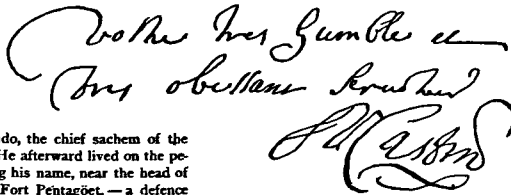 votre tres humble et
tres obeissant serviteur
do, the chief sachem of the
He afterward lived on the pe-
g his name, near the head of
Fort Pentagöet, — a defence